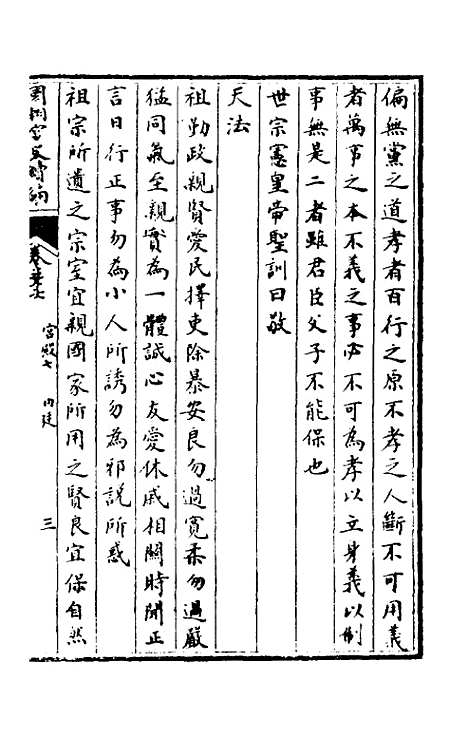 偏無黨之道孝者百行之原不孝之人斷不可用義
者萬事之本不義之事必不可為孝以立身義以制
事無是二者雖君臣父子不能保也
世宗憲皇帝聖訓曰敬
天法
祖勤政親賢愛民擇吏除暴安良勿過寬柔勿過嚴
猛同氣至親實為一體誠心友愛休戚相關時聞正
言日行正事勿為小人所誘勿為邪說所惑
祖宗所遺之宗室宜親國家所用之賢良宜保自然
國朝宮史續編 卷五十七 宮殿七 內廷 三